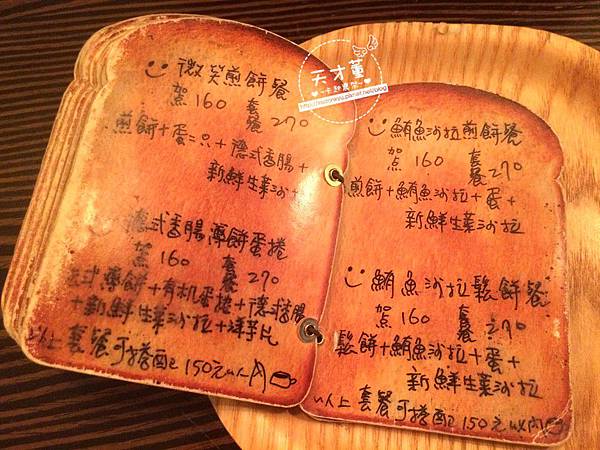 天才董
微笑煎餅餐
單點160 套餐270
煎餅+蛋二只+德式香腸+
新鮮生菜沙拉
德式香腸薄餅蛋捲
單點160 套餐270
法式薄餅+有机蛋捲+德式香腸
+新鮮生菜沙拉+洋芋片
以上套餐可搭配150元以內
鮪魚沙拉煎餅餐
單點160 套餐270
煎餅+鮪魚沙拉+蛋+
新鮮生菜沙拉
鮪魚沙拉鬆餅餐
單點160 套餐270
鬆餅+鮪魚沙拉+蛋+
新鮮生菜沙拉
以上套餐可搭配150元以內